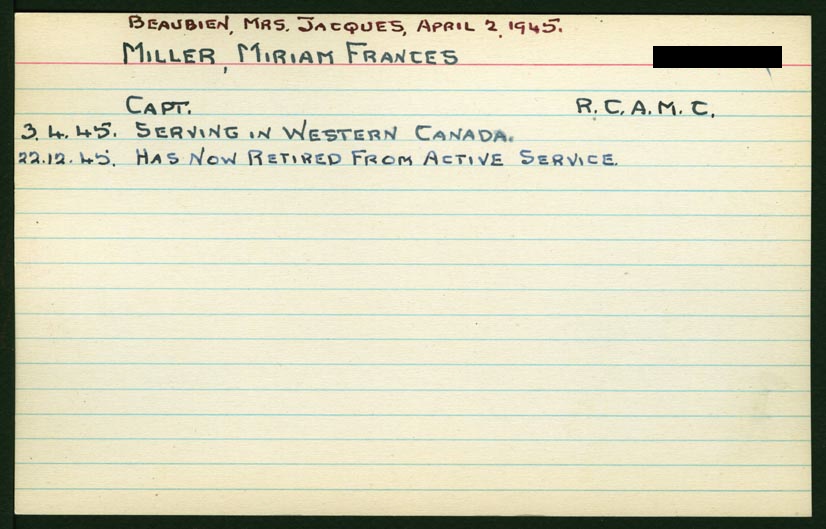 BEAUBIEN, MRS. JACQUES, APRIL 2, 1945.
MILLER, MIRIAM FRANCES
CAPT. R.C.A.M.C.
3.4.45. SERVING IN WESTERN CANADA.
22.12.45. HAS NOW RETIRED FROM ACTIVE SERVICE.